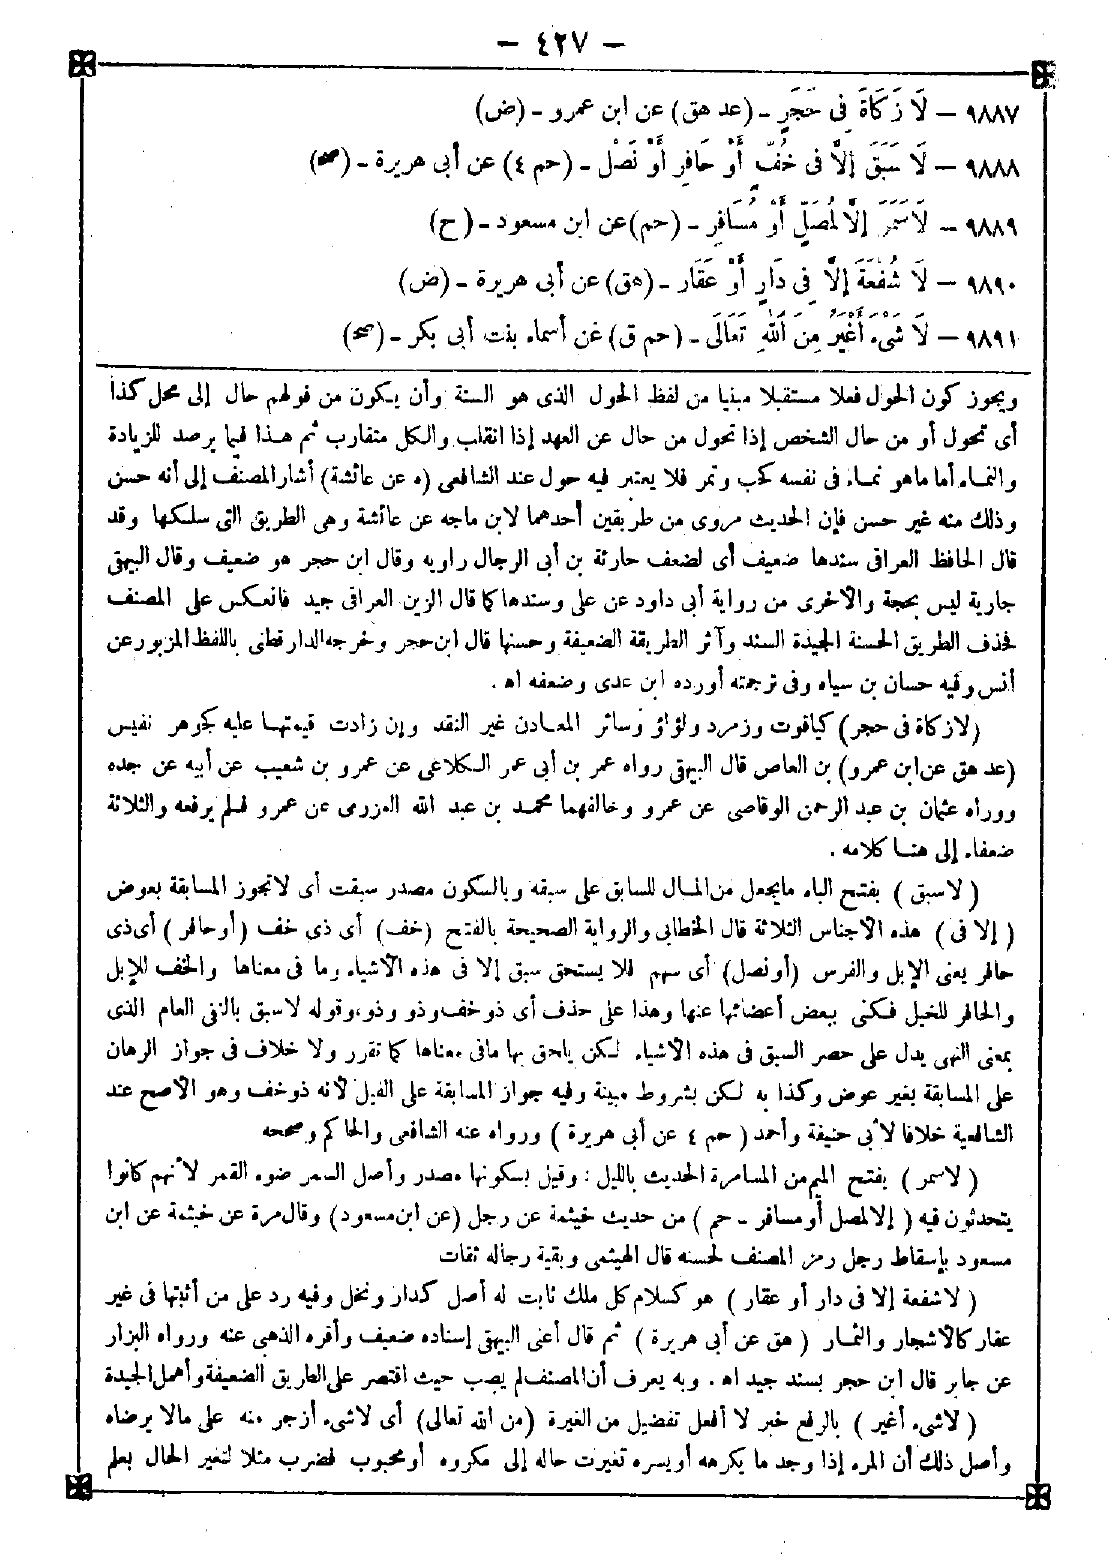 — ٤٢٧ —
٩٨٨٧ — لَا زَكَاةَ فِى حَجَرٍ - (عد هق) عن ابن عمرو - (ض)
٩٨٨٨ — لَا سَبَقَ إِلَّا فى خُفٍّ أَوْ حَافِرٍ أَوْ نَصْلٍ - (حم ٤) عن أبى هريرة - (صح)
٩٨٨٩ — لَاسَمَرَ إِلَّا لِمُصَلٍّ أَوْ مُسَافِرٍ - (حم) عن ابن مسعود - (ح)
٩٨٩٠ — لَا شُفْعَةَ إِلَّا فِى دَارٍ أَوْ عَقَار - (هق) عن أبى هريرة - (ض)
٩٨٩١ — لَا شَىْءَ أَغْيَرُ مِنَ اللّٰهِ تَعَالَى - (حم ق) عن أسماء بنت أبى بكر - (صح)
ويجوز كون الحول فعلا مستقبلا مبنيا من لفظ الحول الذى هو السنة وأن يكون من قولهم حال إلى محل كذا
أى تحول أو من حال الشخص إذا تحول من حال عن العهد إذا انقلب والكل متقارب ثم هذا فيما يرصد للزيادة
والنماء أما ماهو نماء فى نفسه كحب وتمر فلا يعتبر فيه حول عند الشافعى (ه عن عائشة) أشار المصنف إلى أنه حسن
وذلك منه غير حسن فإن الحديث مروى من طريقين أحدهما لابن ماجه عن عائشة وهى الطريق التى سلكها وقد
قال الحافظ العراقى سندها ضعيف أى لضعف حارثة بن أبى الرجال راويه وقال ابن حجر هو ضعيف وقال البيهقى
جارية ليس بحجة والأخرى من رواية أبى داود عن على وسندها كما قال الزين العراقى جيد فانعكس على المصنف
فحذف الطريق الحسنة الجيدة السند وآثر الطريقة الضعيفة وحسنها قال ابن حجر وخرجه الدارقطنى باللفظ المزبور عن
أنس وفيه حسان بن سياه وفى ترجمته أورده ابن عدى وضعفه اه .
(لازكاة فى حجر) كياقوت وزمرد ولؤلؤ وسائر المعادن غير النقد وإن زادت قيمتها عليه كجوهر نفيس
(عد هق عن ابن عمرو) بن العاص قال البيهقى رواه عمر بن أبى عمر الكلاعى عن عمرو بن شعيب عن أبيه عن جده
وورواه عثمان بن عبد الرحمن الوقاصى عن عمرو وخالفهما محمد بن عبد الله العزرمى عن عمرو فلم يرفعه والثلاثة
ضعفاء إلى هنا كلامه .
( لاسبق ) بفتح الباء مايجعل من المال للسابق على سبقه وبالسكون مصدر سبقت أى لاتجوز المسابقة بعوض
( إلا فى ) هذه الأجناس الثلاثة قال الخطابى والرواية الصحيحة بالفتح (خف) أى ذى خف (أوحافر ) أى ذى
حافر يعنى الإبل والفرس (أونصل) أى سهم فلا يستحق سبق إلا فى هذه الأشياء وما فى معناها والخف للإبل
والحافر للخيل فكنى ببعض أعضائها عنها وهذا على حذف أى ذو خف وذو وذو، وقوله لاسبق بالنفى العام الذى
بمعنى النهى يدل على حصر السبق فى هذه الأشياء لكن يلحق بها مافى معناها كما تقرر ولا خلاف فى جواز الرهان
على المسابقة بغير عوض وكذا به لكن بشروط مبينة وفيه جواز المسابقة على الفيل لأنه ذوخف وهو الأصح عند
الشافعية خلافا لأبى حنيفة وأحمد ( حم ٤ عن أبى هريرة ) ورواه عنه الشافعى والحاكم وصححه
( لاسمر ) بفتح الميم من المسامرة الحديث بالليل : وقيل بسكونها مصدر وأصل السمر ضوء القمر لأنهم كانوا
يتحدثون فيه ( إلا لمصل أو مسافر - حم ) من حديث خيثمة عن رجل (عن ابن مسعود) وقال مرة عن خيثمة عن ابن
مسعود بإسقاط رجل رمز المصنف لحسنه قال الهيثمى وبقية رجاله ثقات
( لاشفعة إلا فى دار أو عقار ) هو كسلام كل ملك ثابت له أصل كدار ونخل وفيه رد على من أثبتها فى غير
عقار كالأشجار والثمار ( هق عن أبى هريرة ) ثم قال أعنى البيهقى إسناده ضعيف وأقره الذهبى عنه ورواه البزار
عن جابر قال ابن حجر بسند جيد اه . وبه يعرف أن المصنف لم يصب حيث اقتصر على الطريق الضعيفة وأهمل الجيدة
( لاشىء أغير ) بالرفع خبر لا أفعل تفضيل من الغيرة (من الله تعالى) أى لاشىء أزجر منه على مالا يرضاه
وأصل ذلك أن المرء إذا وجد ما يكرهه أو يسره تغيرت حاله إلى مكروه أو محبوب فضرب مثلا لتغير الحال بعلم